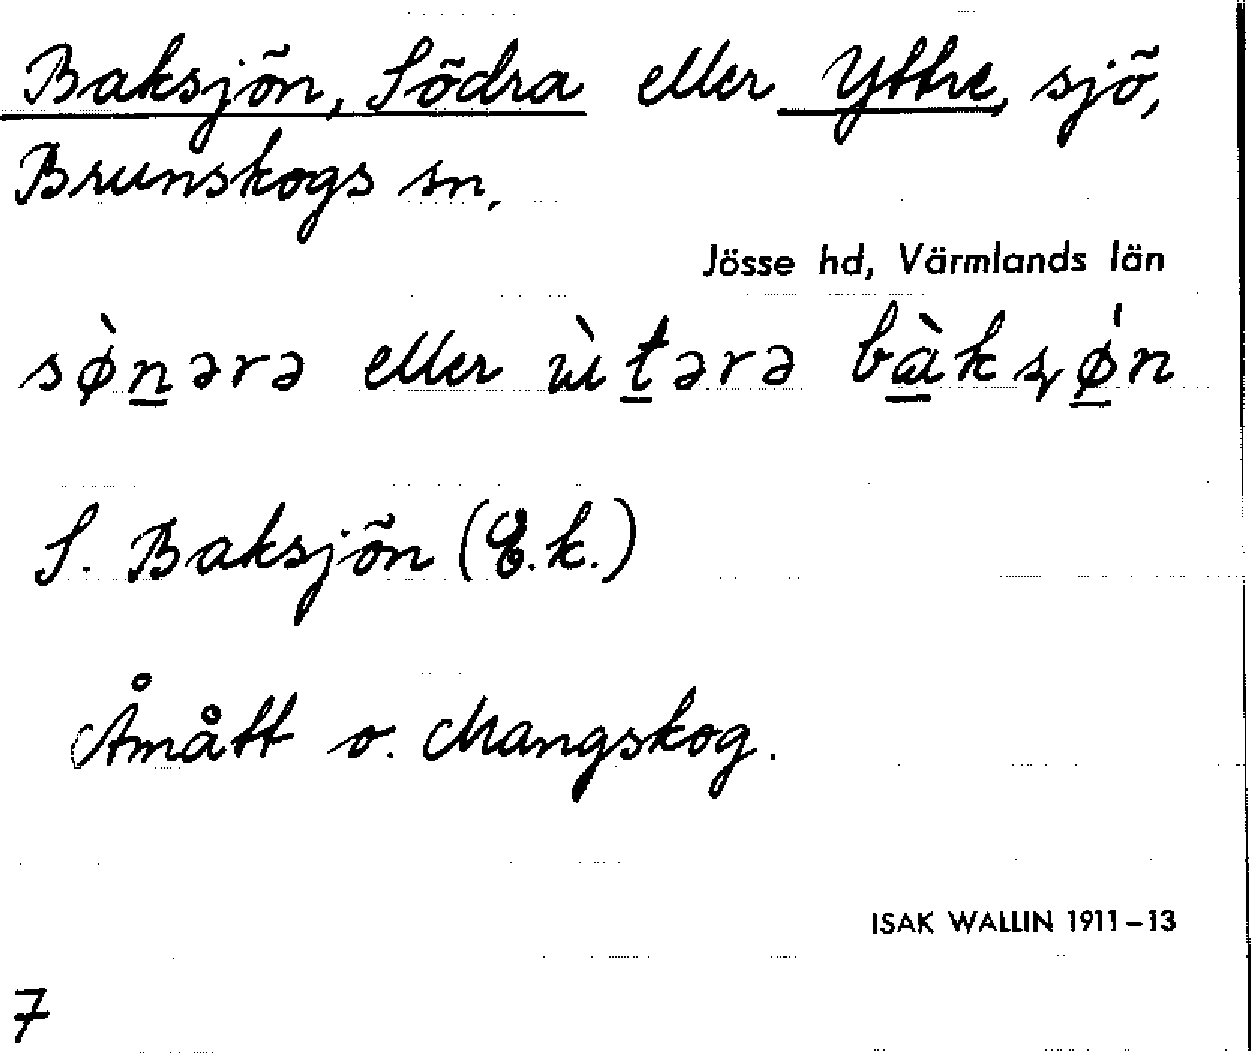 Baksjön, Södra eller Yttre, sjö,
Brunskogs sn,
Jösse hd, Värmlands län
sø̀nərə eller ùtərə bàksø̍n
S. Baksjön (E.k.)
Åmått o. Mangskog.
ISAK WALLIN 1911–13
7